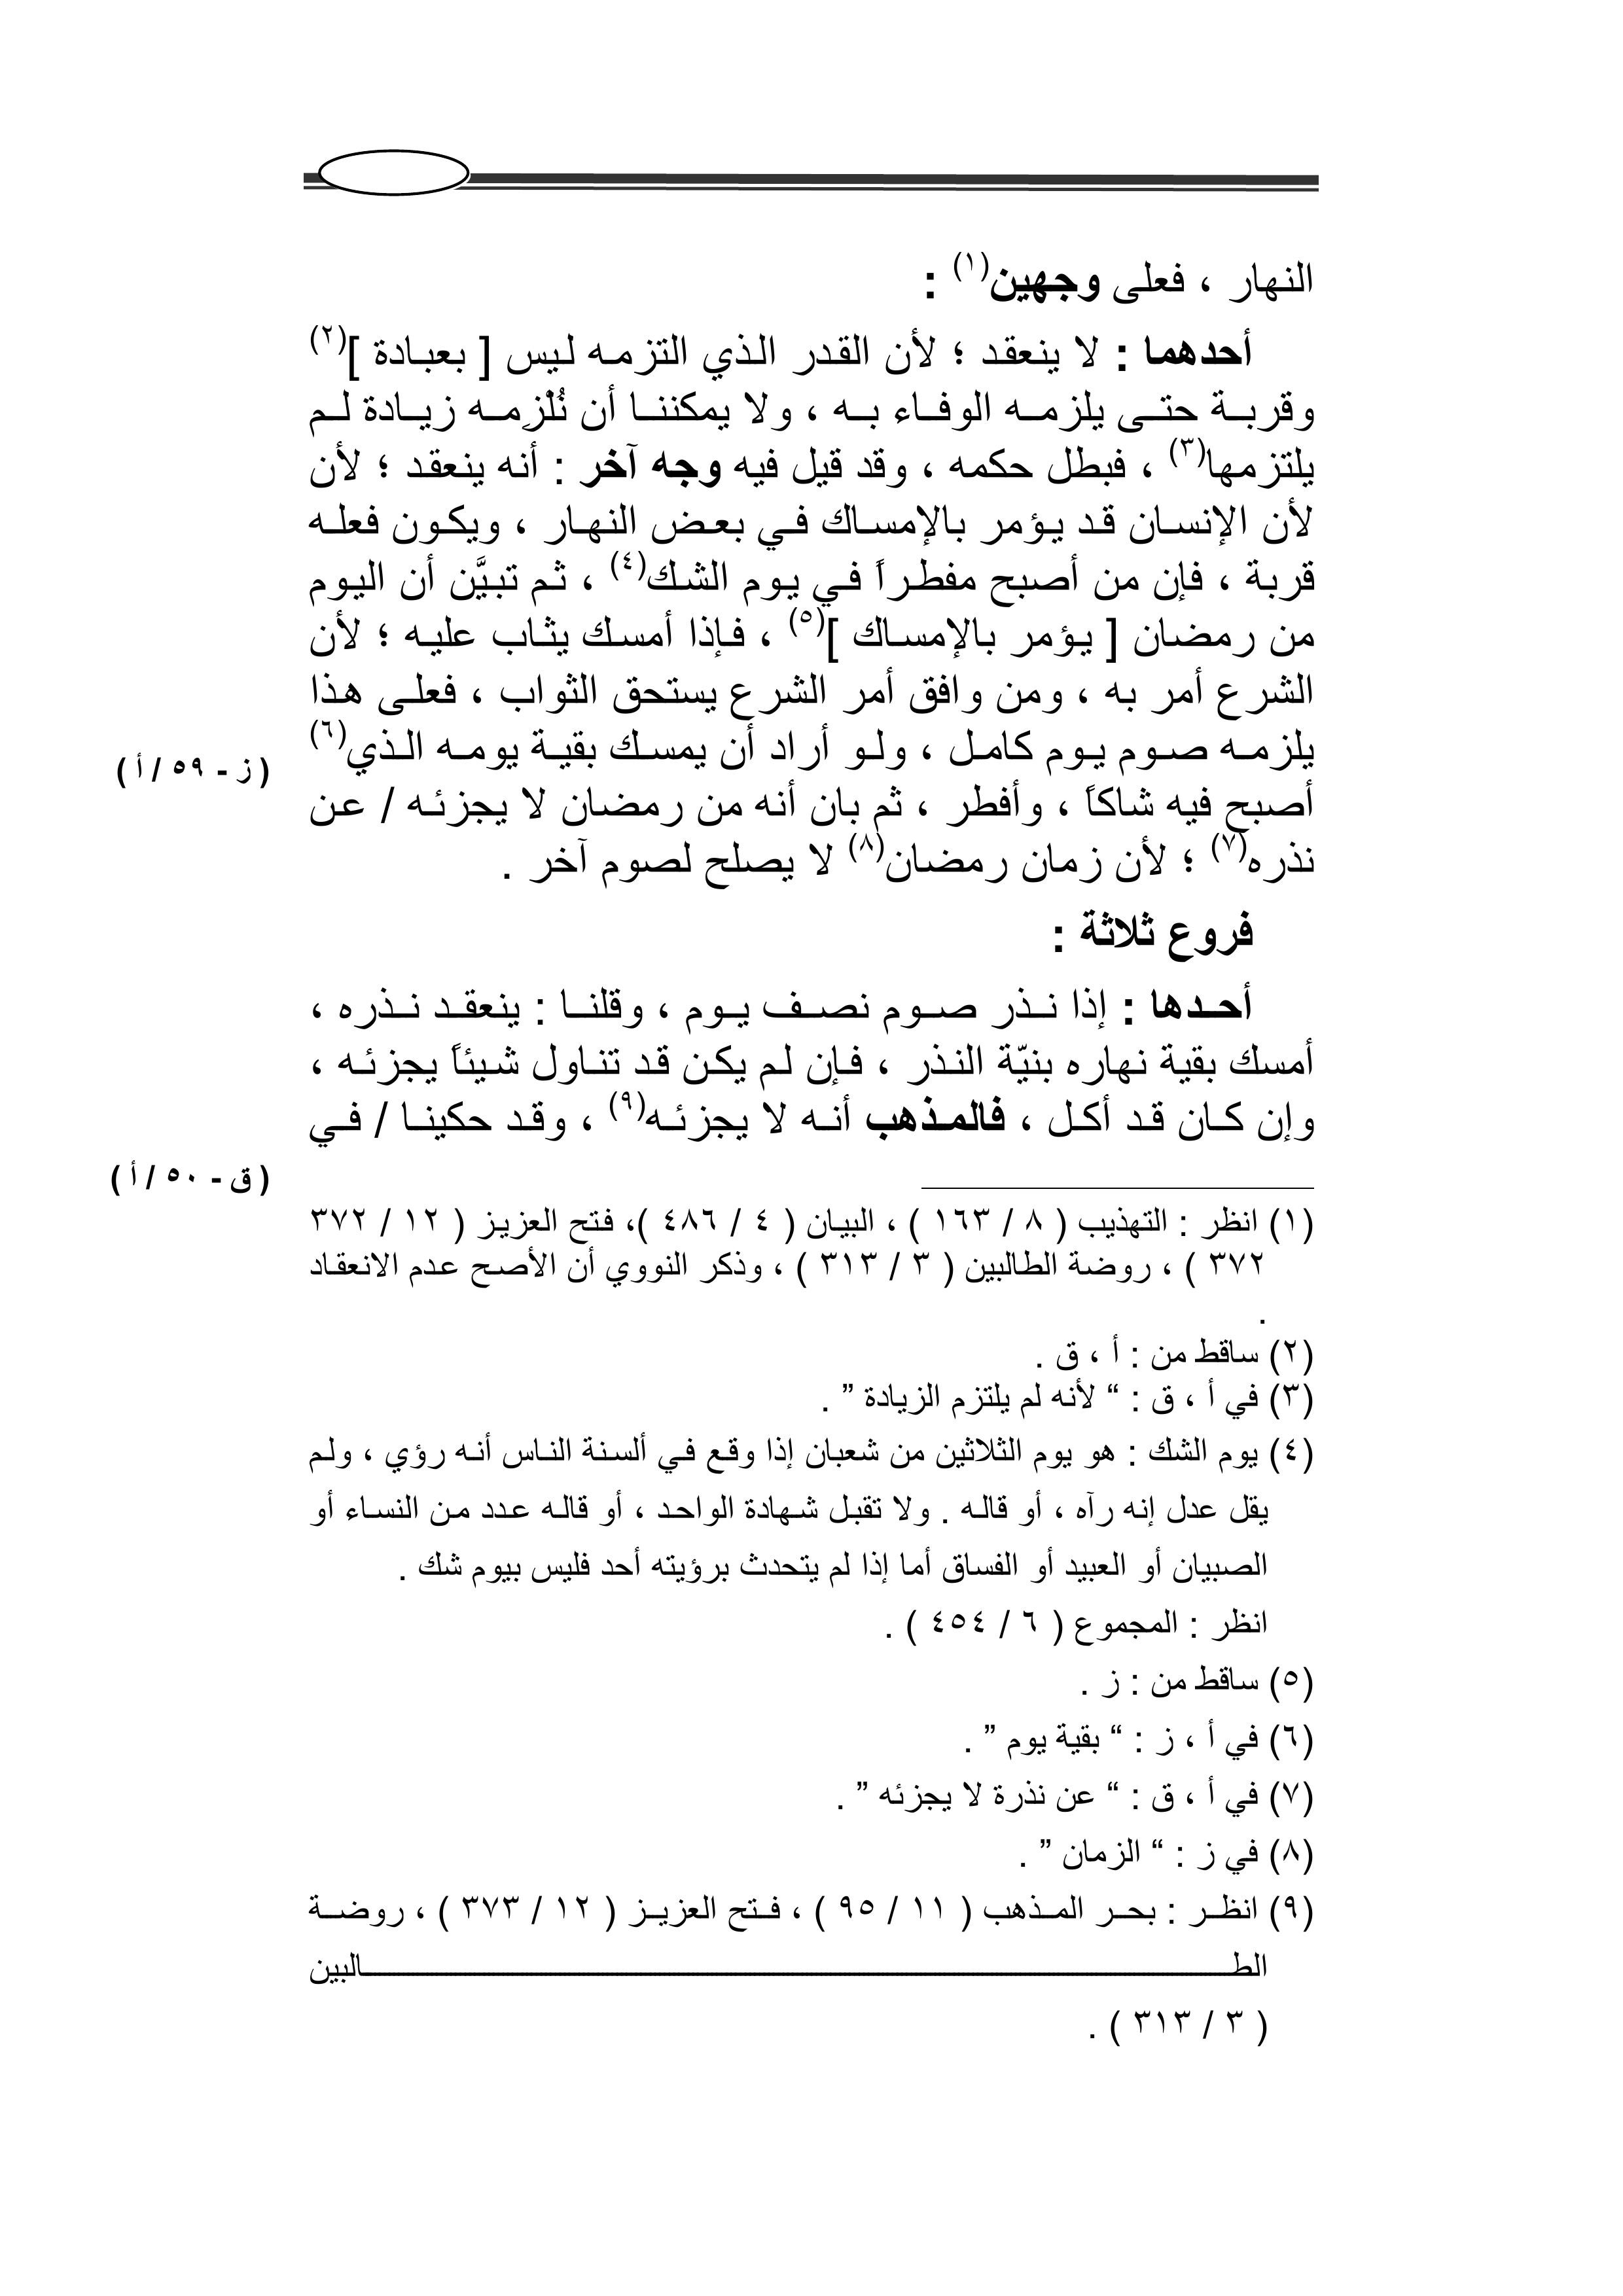 النهار ، فعلى وجهين(١) :
أحدهما : لا ينعقد ؛ لأن القدر الذي التزمه ليس [ بعبادة ](٢)
وقربة حتى يلزمه الوفاء به ، ولا يمكننا أن نُلْزِمه زيادة لم
يلتزمها(٣) ، فبطل حكمه ، وقد قيل فيه وجه آخر : أنه ينعقد ؛ لأن
لأن الإنسان قد يؤمر بالإمساك في بعض النهار ، ويكون فعله
قربة ، فإن من أصبح مفطراً في يوم الشك(٤) ، ثم تبيَّن أن اليوم
من رمضان [ يؤمر بالإمساك ](٥) ، فإذا أمسك يثاب عليه ؛ لأن
الشرع أمر به ، ومن وافق أمر الشرع يستحق الثواب ، فعلى هذا
يلزمه صوم يوم كامل ، ولو أراد أن يمسك بقية يومه الذي(٦)
( ز - ٥٩ / أ )
أصبح فيه شاكاً ، وأفطر ، ثم بان أنه من رمضان لا يجزئه / عن
نذره(٧) ؛ لأن زمان رمضان(٨) لا يصلح لصوم آخر .
فروع ثلاثة :
أحدها : إذا نذر صوم نصف يوم ، وقلنا : ينعقد نذره ،
أمسك بقية نهاره بنيّة النذر ، فإن لم يكن قد تناول شيئاً يجزئه ،
وإن كان قد أكل ، فالمذهب أنه لا يجزئه(٩) ، وقد حكينا / في
( ق - ٥٠ / أ )
(١) انظر : التهذيب ( ٨ / ١٦٣ ) ، البيان ( ٤ / ٤٨٦ )، فتح العزيز ( ١٢ / ٣٧٢
٣٧٢ ) ، روضة الطالبين ( ٣ / ٣١٣ ) ، وذكر النووي أن الأصح عدم الانعقاد
.
(٢) ساقط من : أ ، ق .
(٣) في أ ، ق : “ لأنه لم يلتزم الزيادة ” .
(٤) يوم الشك : هو يوم الثلاثين من شعبان إذا وقع في ألسنة الناس أنه رؤي ، ولم
يقل عدل إنه رآه ، أو قاله . ولا تقبل شهادة الواحد ، أو قاله عدد من النساء أو
الصبيان أو العبيد أو الفساق أما إذا لم يتحدث برؤيته أحد فليس بيوم شك .
انظر : المجموع ( ٦ / ٤٥٤ ) .
(٥) ساقط من : ز .
(٦) في أ ، ز : “ بقية يوم ” .
(٧) في أ ، ق : “ عن نذرة لا يجزئه ” .
(٨) في ز : “ الزمان ” .
(٩) انظر : بحر المذهب ( ١١ / ٩٥ ) ، فتح العزيز ( ١٢ / ٣٧٣ ) ، روضة
الطالبين
( ٣ / ٣١٣ ) .